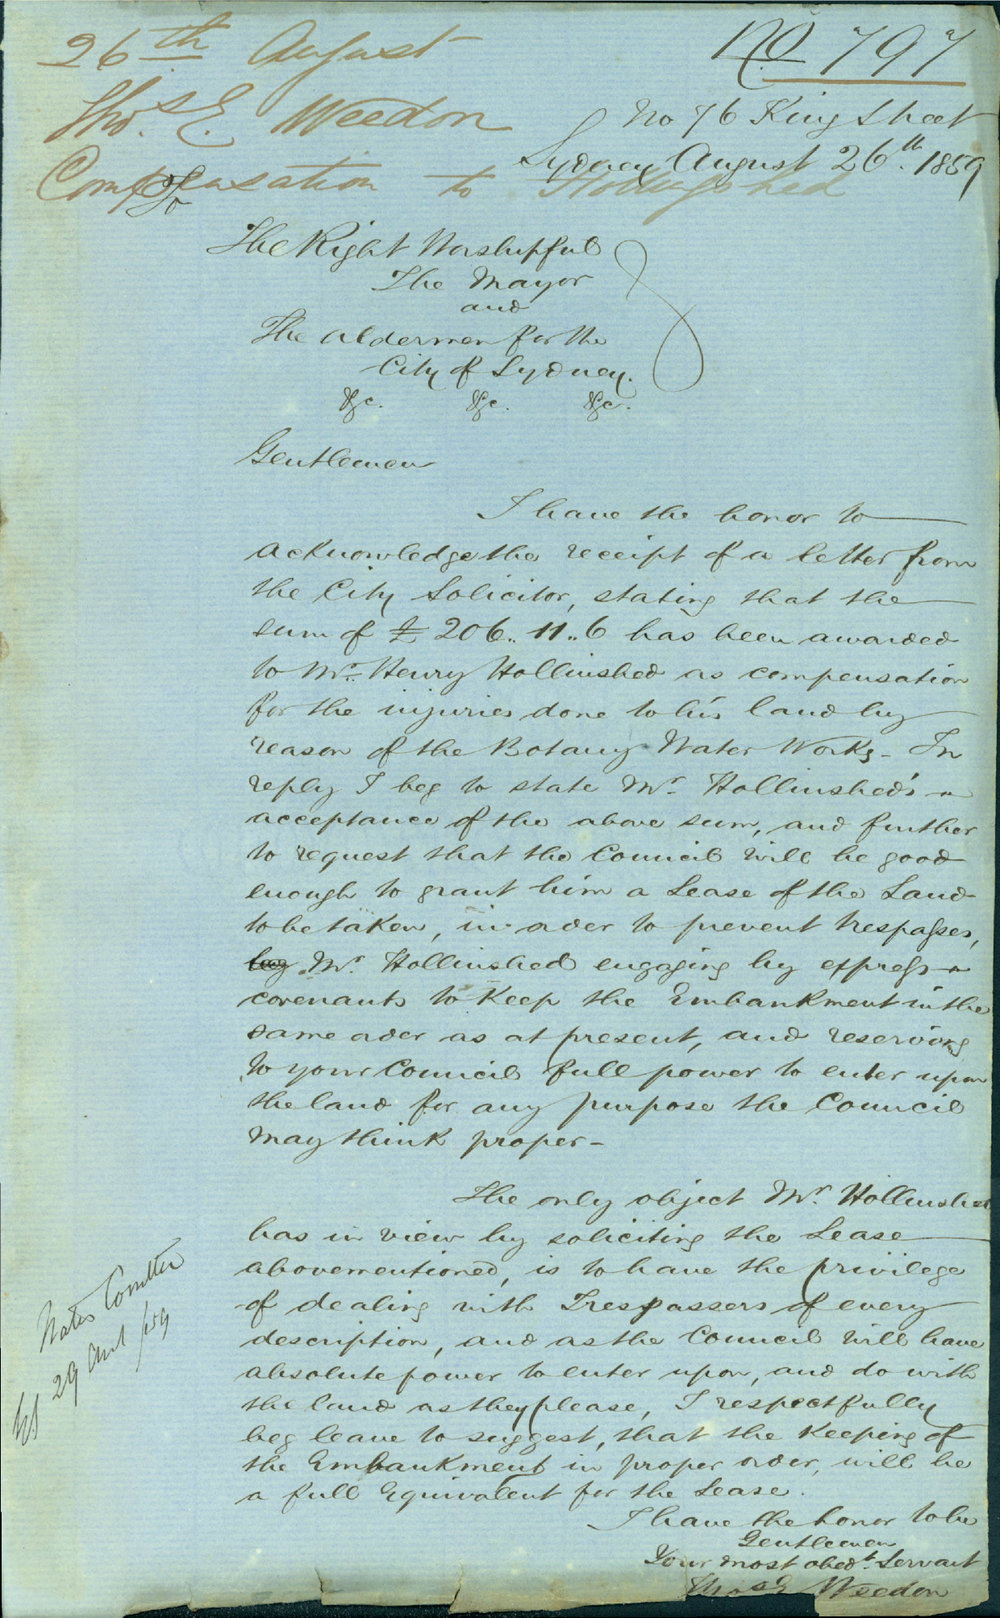 26th August
Thos. E. Weedon
Compensation to Hollingshed
No 797
No 76 King Street
Sydney August 26th. 1859
To
The Right Worshipful
The Mayor
and
The Aldermen for the
City of Sydney.
&c. &c. &c.
Gentlemen
I have the honor to
acknowledge the receipt of a letter from
the City Solicitor, stating that the
sum of £206..11..6 has been awarded
to Mr. Henry Hollinshed as compensation
for the injuries done to his land by
reason of the Botany Water Works - In
reply I beg to state Mr. Hollinshed's
acceptance of the above sum, and further
to request that the Council will be good
enough to grant him a Lease of the Land
to be taken, in order to prevent trespasses,
Mr. Hollinshed engaging by express
covenants to keep the Embankment in the
same order as at present, and reserving
to your Council full power to enter upon
the land for any purpose the Council
may think proper -
The only object Mr. Hollinshed
has in view by soliciting the Lease
abovementioned, is to have the privilege
of dealing with Trespassers of every
description, and as the Council will have
absolute power to enter upon, and do with
the land as they please, I respectfully
beg leave to suggest, that the keeping of
the Embankment in proper order, will be
a full Equivalent for the Lease.
I have the honor to be
Gentlemen
Your most obedt. Servant
Thos. E Weedon
Water Comttee
29 Aust /59